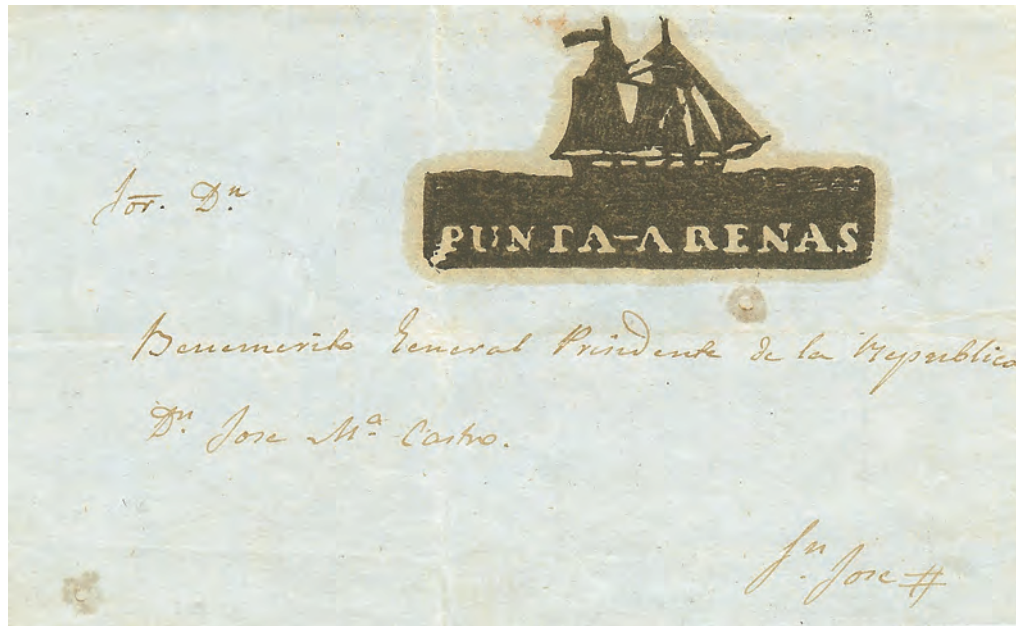 PUNTA-ARENAS
Sor. Dn
Benemerito General Presidente de la Republica
Dn. Jose Ma. Castro.
Sn. Jose